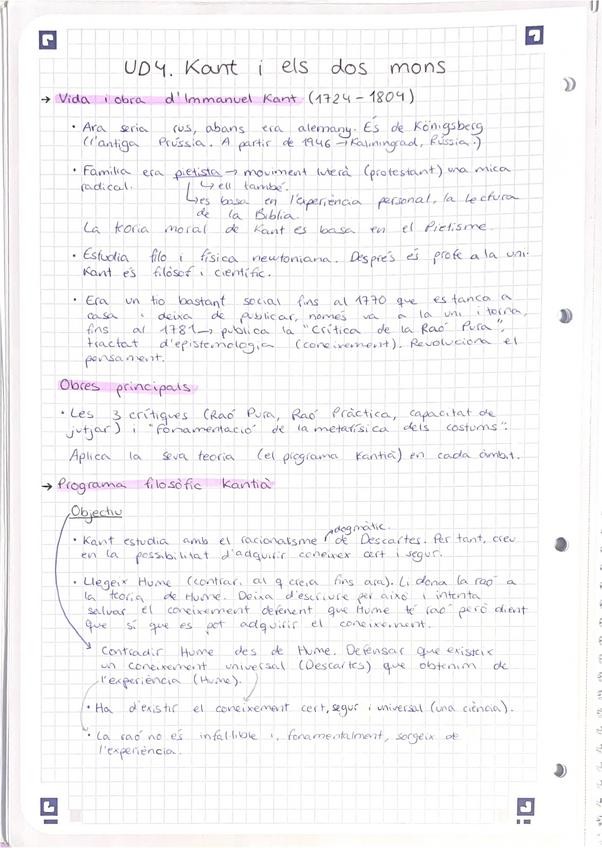 UD4. Kant i els dos mons
→ Vida i obra d'Immanuel Kant (1724-1804)
• Ara seria rus, abans era alemany. És de Königsberg
(l'antiga Prússia. A partir de 1946 → Kaliningrad, Rússia.)
• Família era pietista → moviment luterà (protestant) una mica
radical. ↳ ell també.
↳ es basa en l'experiència personal, la lectura
de la Bíblia.
La teoria moral de Kant es basa en el Pietisme.
• Estudia filo i física newtoniana. Després és profe a la uni.
Kant és filòsof i científic.
• Era un tio bastant social fins al 1770 que es tanca a
casa i deixa de publicar, només va a la uni i torna,
fins al 1781 → publica la "Crítica de la Raó Pura",
tractat d'epistemologia (coneixement). Revoluciona el
pensament.
Obres principals
• Les 3 crítiques (Raó Pura, Raó Pràctica, capacitat de
jutjar) i "Fonamentació de la metafísica dels costums".
Aplica la seva teoria (el programa Kantià) en cada àmbit.
→ Programa filosòfic Kantià
Objectiu
• Kant estudia amb el racionalisme dogmàtic de Descartes. Per tant, creu
en la possibilitat d'adquirir coneixer cert i segur.
• Llegeix Hume (contrari al q creia fins ara). Li dona la raó a
la teoria de Hume. Deixa d'escriure per això i intenta
salvar el coneixement defenent que Hume té raó però dient
que sí que es pot adquirir el coneixement.
Contradir Hume des de Hume. Defensar que existeix
un coneixement universal (Descartes) que obtenim de
l'experiència (Hume).
• Ha d'existir el coneixement cert, segur i universal (una ciència).
• La raó no és infal·lible i, fonamentalment, sorgeix de
l'experiència.